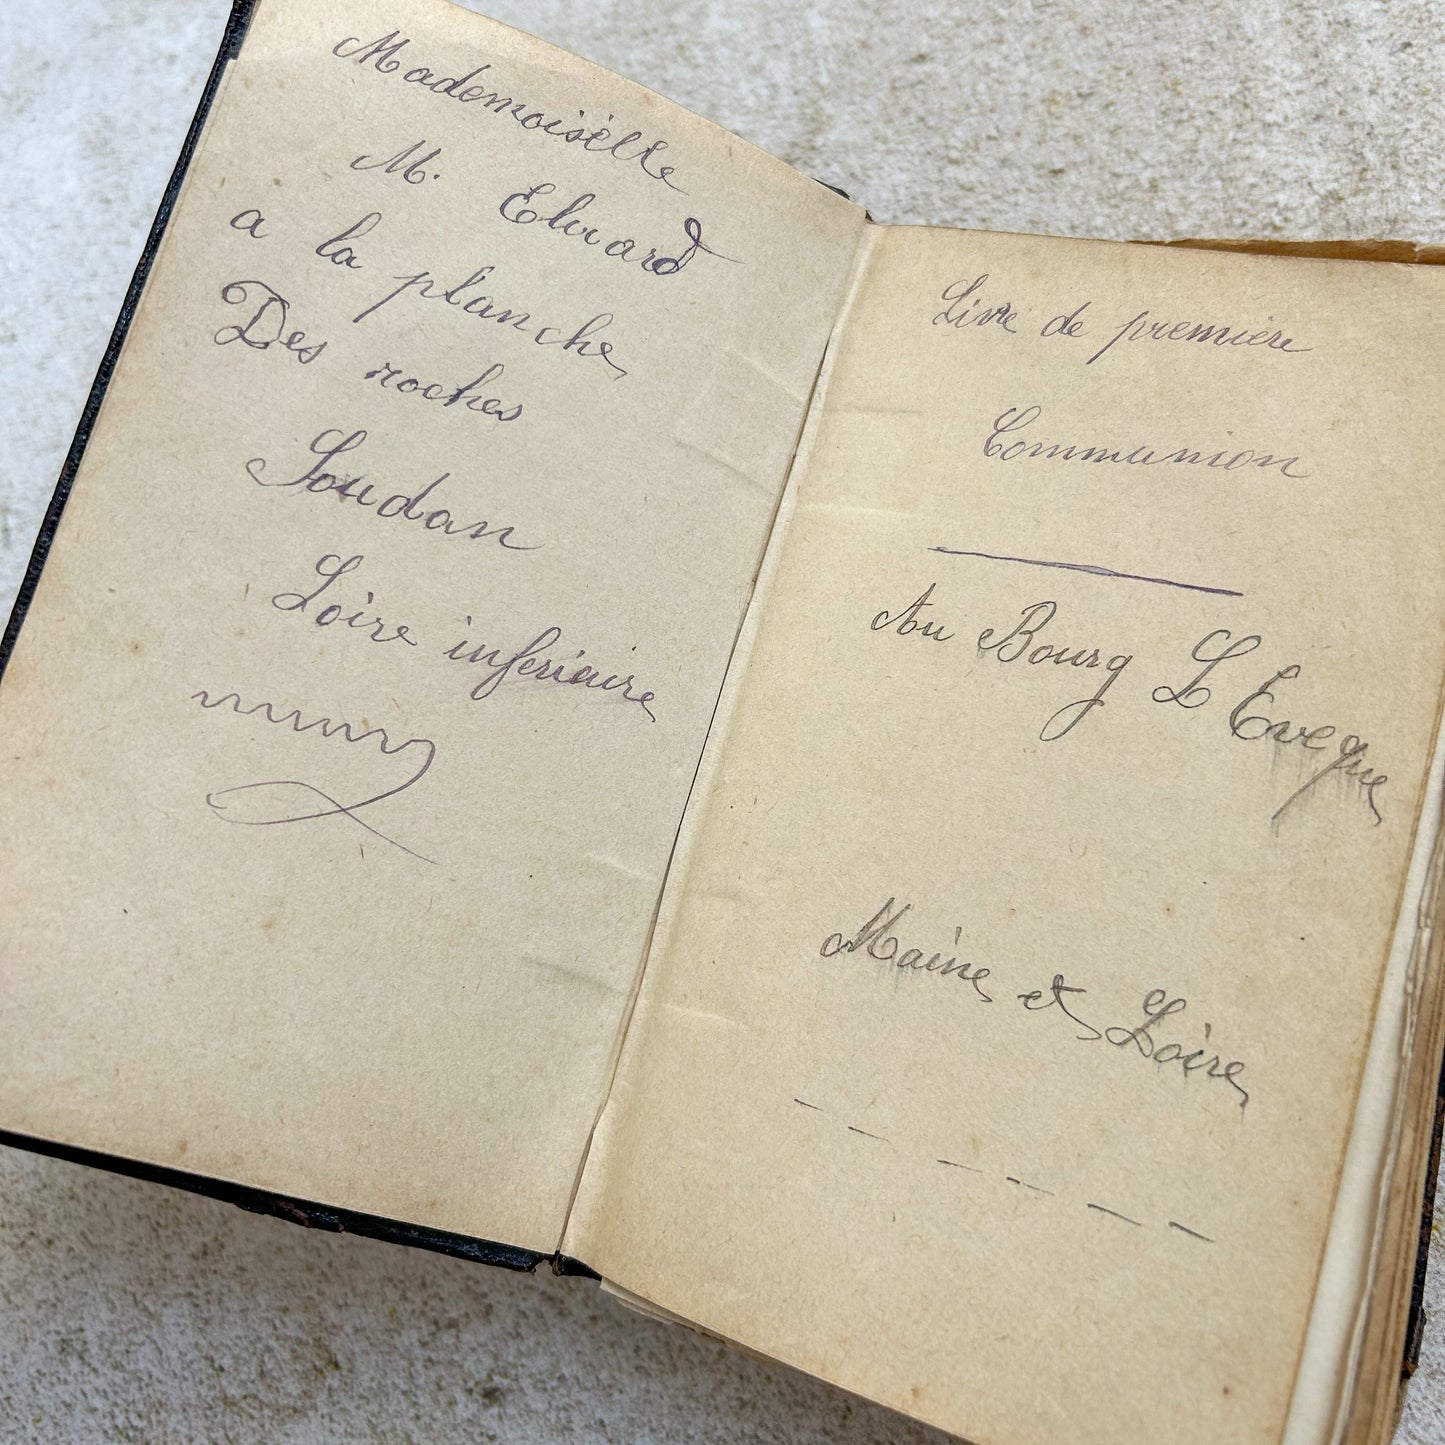 Mademoiselle
M. Ebvard
a la planche
Des roches
Soudan
Loire inferiaire
Livre de première
Communion
Au Bourg L Eveque
Maine et Loire